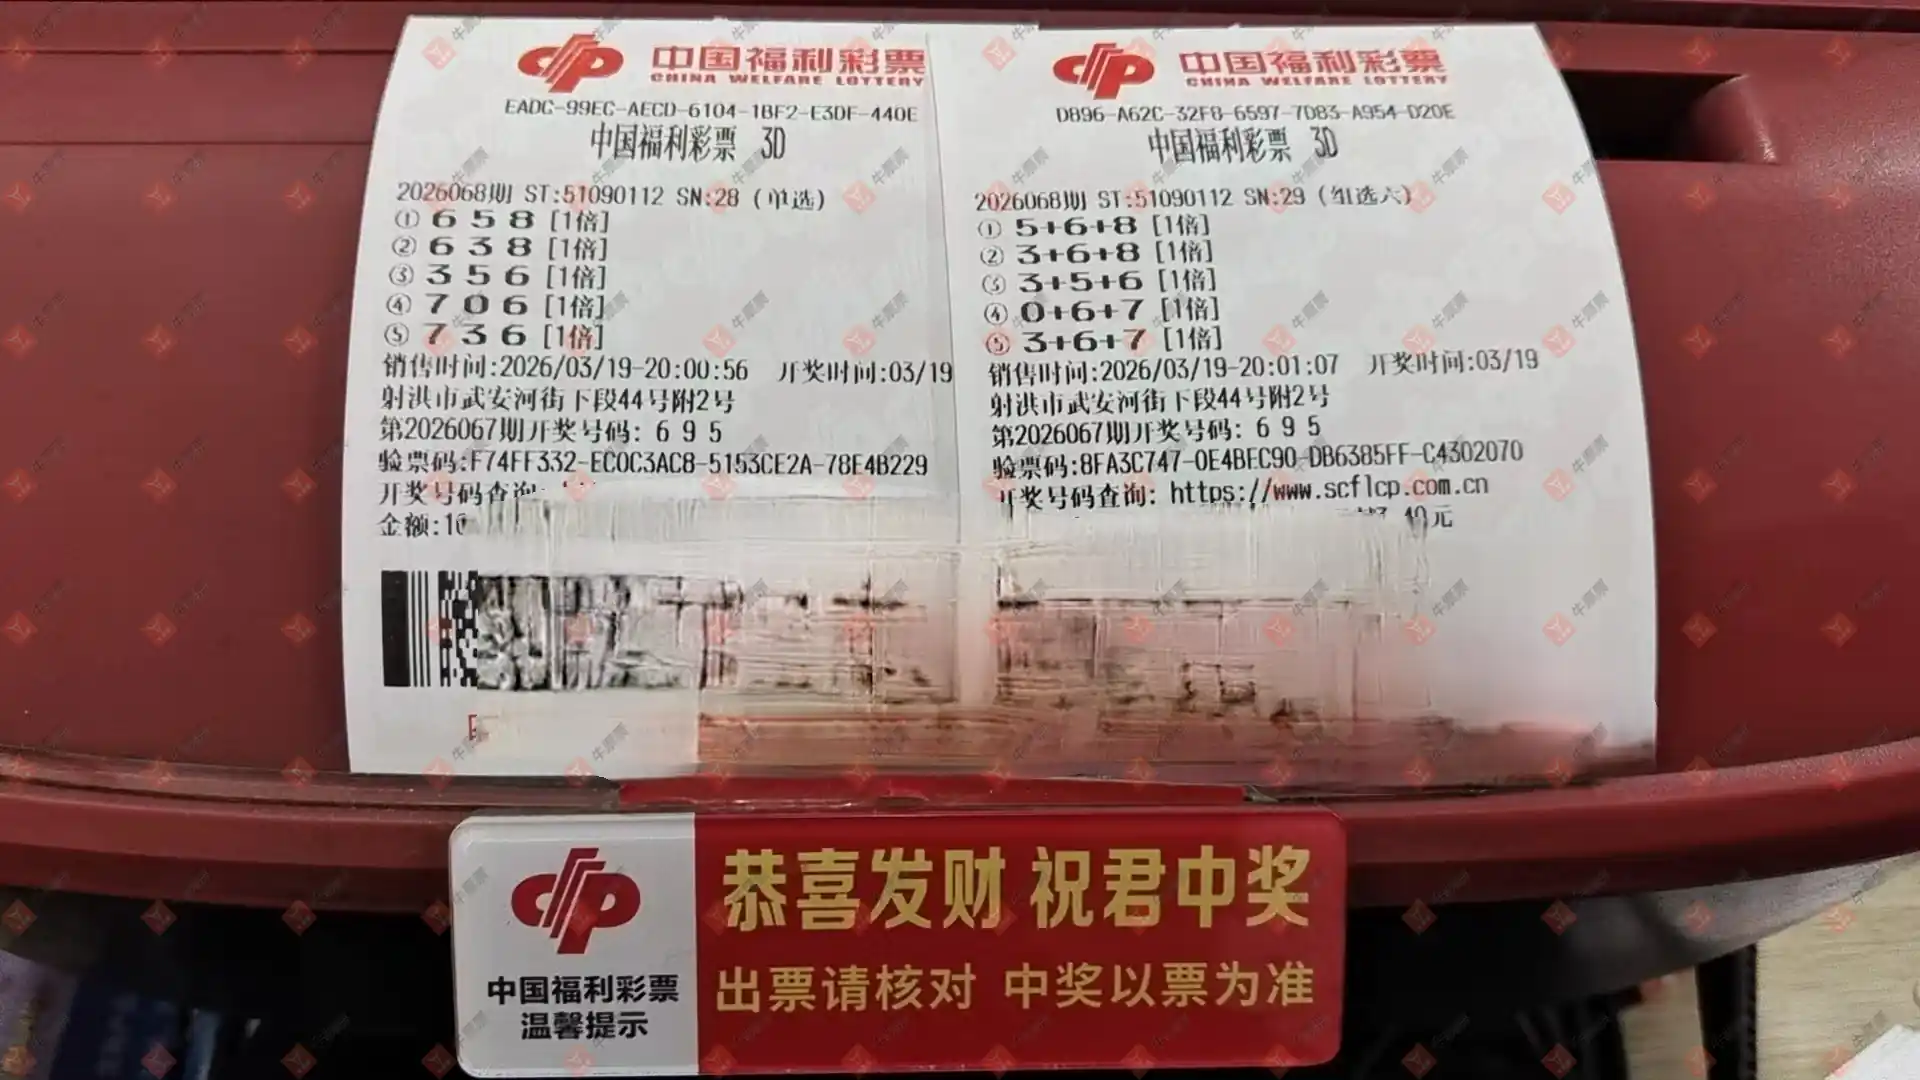 中国福利彩票
CHINA WELFARE LOTTERY
EADC-99EC-AECD-6104-1BF2-E3DF-440E
中国福利彩票 3D
2026068期 ST:51090112 SN:28 (单选)
① 6 5 8 [1倍]
② 6 3 8 [1倍]
③ 3 5 6 [1倍]
④ 7 0 6 [1倍]
⑤ 7 3 6 [1倍]
销售时间:2026/03/19-20:00:56 开奖时间:03/19
射洪市武安河街下段44号附2号
第2026067期开奖号码: 6 9 5
验票码:F74FF332-EC0C3AC8-5153CE2A-78E4B229
开奖号码查询:
金额:10
中国福利彩票
CHINA WELFARE LOTTERY
D896-A62C-32F8-6597-7D83-A954-D20E
中国福利彩票 3D
2026068期 ST:51090112 SN:29 (组选六)
① 5+6+8 [1倍]
② 3+6+8 [1倍]
③ 3+5+6 [1倍]
④ 0+6+7 [1倍]
⑤ 3+6+7 [1倍]
销售时间:2026/03/19-20:01:07 开奖时间:03/19
射洪市武安河街下段44号附2号
第2026067期开奖号码: 6 9 5
验票码:8FA3C747-0E4BEC90-DB6385FF-C4302070
开奖号码查询: https://www.scflcp.com.cn
10元
中国福利彩票
温馨提示
恭喜发财 祝君中奖
出票请核对 中奖以票为准